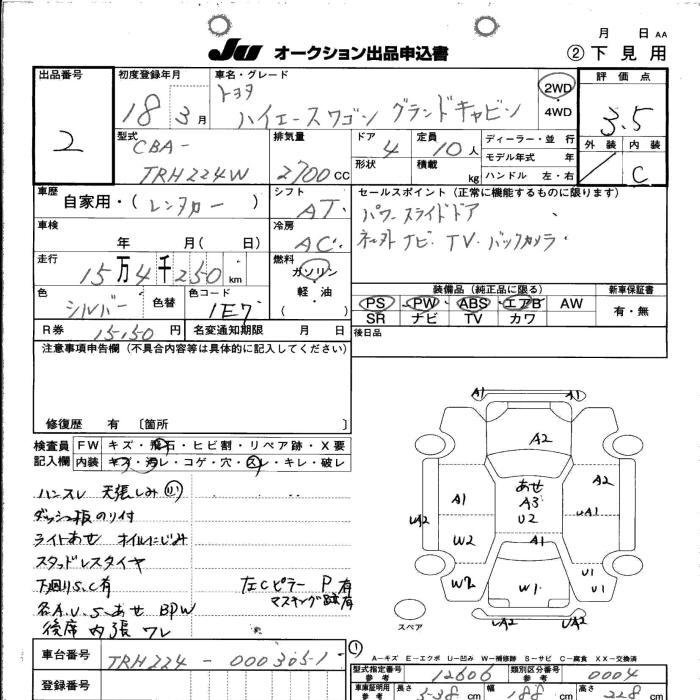 月 日 AA
JU オークション出品申込書 ②下見用
出品番号 初度登録年月 車名・グレード 評価点
2 18 3月 トヨタ 2WD 3.5
ハイエースワゴン グランドキャビン 4WD
外装 内装
C
型式 排気量 ドア 定員 ディーラー・並行
CBA- 4 10人 モデル年式 年
TRH224W 2700cc 形状 積載 kg ハンドル 左・右
車歴 シフト セールスポイント（正常に機能するものに限ります）
自家用・（レンタカー） AT パワースライドドア
車検 冷房 ナビ・TV・バックカメラ
年 月（ 日） AC
走行 燃料
15万4千250km ガソリン 装備品（純正品に限る） 新車保証書
色 色コード 軽・油 PS PW ABS エアB AW 有・無
シルバー 色替 1E7 （ ） SR ナビ TV カワ
R券 15,150円 名変通知期限 月 日 後日品
注意事項申告欄（不具合内容等は具体的に記入してください）
修復歴 有 〔箇所 〕
検査員 FW キズ・飛石・ヒビ割・リペア跡・X要
記入欄 内装 キズ・汚レ・コゲ・穴・スレ・キレ・破レ
ハンスレ 天張しみ
ダッシュ板のり付
ライトあせ オイルにじみ
スタッドレスタイヤ
下廻りS.C有 左Cピラー P有
マスキング跡有
各A.U.S・あせ BPW
後席内張ワレ
A1 A1
A2
あせ
A3
U2
A1 A2
UA2 UA1
W2 A1
W2 W1 U1 U1
UA2 UA2
スペア
A－キズ E－エクボ U－凹み W－補修跡 S－サビ C－腐食 XX－交換済
車台番号 TRH224-0003051 型式指定番号 参考 12606 類別区分番号 参考 0004
登録番号 車庫証明用 参考 長さ 538cm 幅 188cm 高さ 228cm